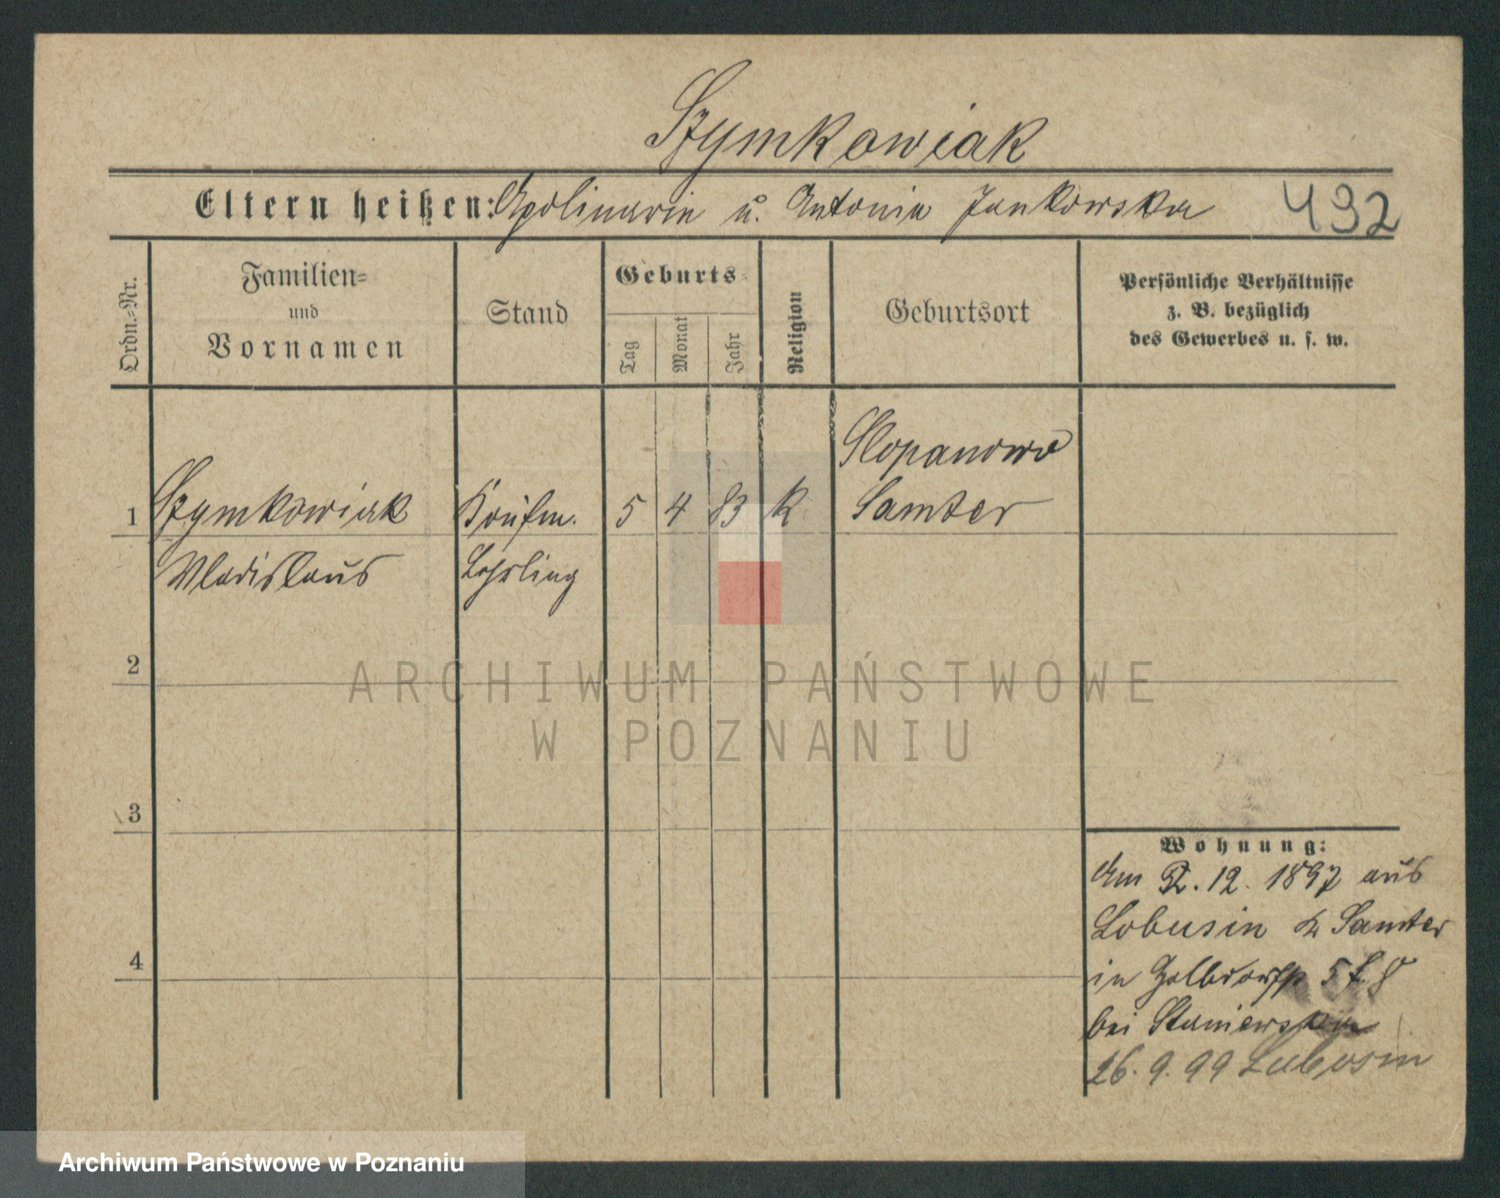 Szymkowiak
Eltern heißen: Apolinarin u. Antonia Jankowska 492
Ordn.-Nr.
Familien-
und
Vornamen
Stand
Geburts-
Tag
Monat
Jahr
Religion
Geburtsort
Persönliche Verhältnisse
z. B. bezüglich
des Gewerbes u. s. w.
Slopanowo
1 Szymkowiak Kaufm. 5 4 83 k Samter
Wladislaus Lehrling
2
3
4
Wohnung:
Am 2. 12. 1897 aus
Lobusin Samter
in 5
bei Staniewska
26. 9. 99 Lubosin
ARCHIWUM PAŃSTWOWE
W POZNANIU
Archiwum Państwowe w Poznaniu